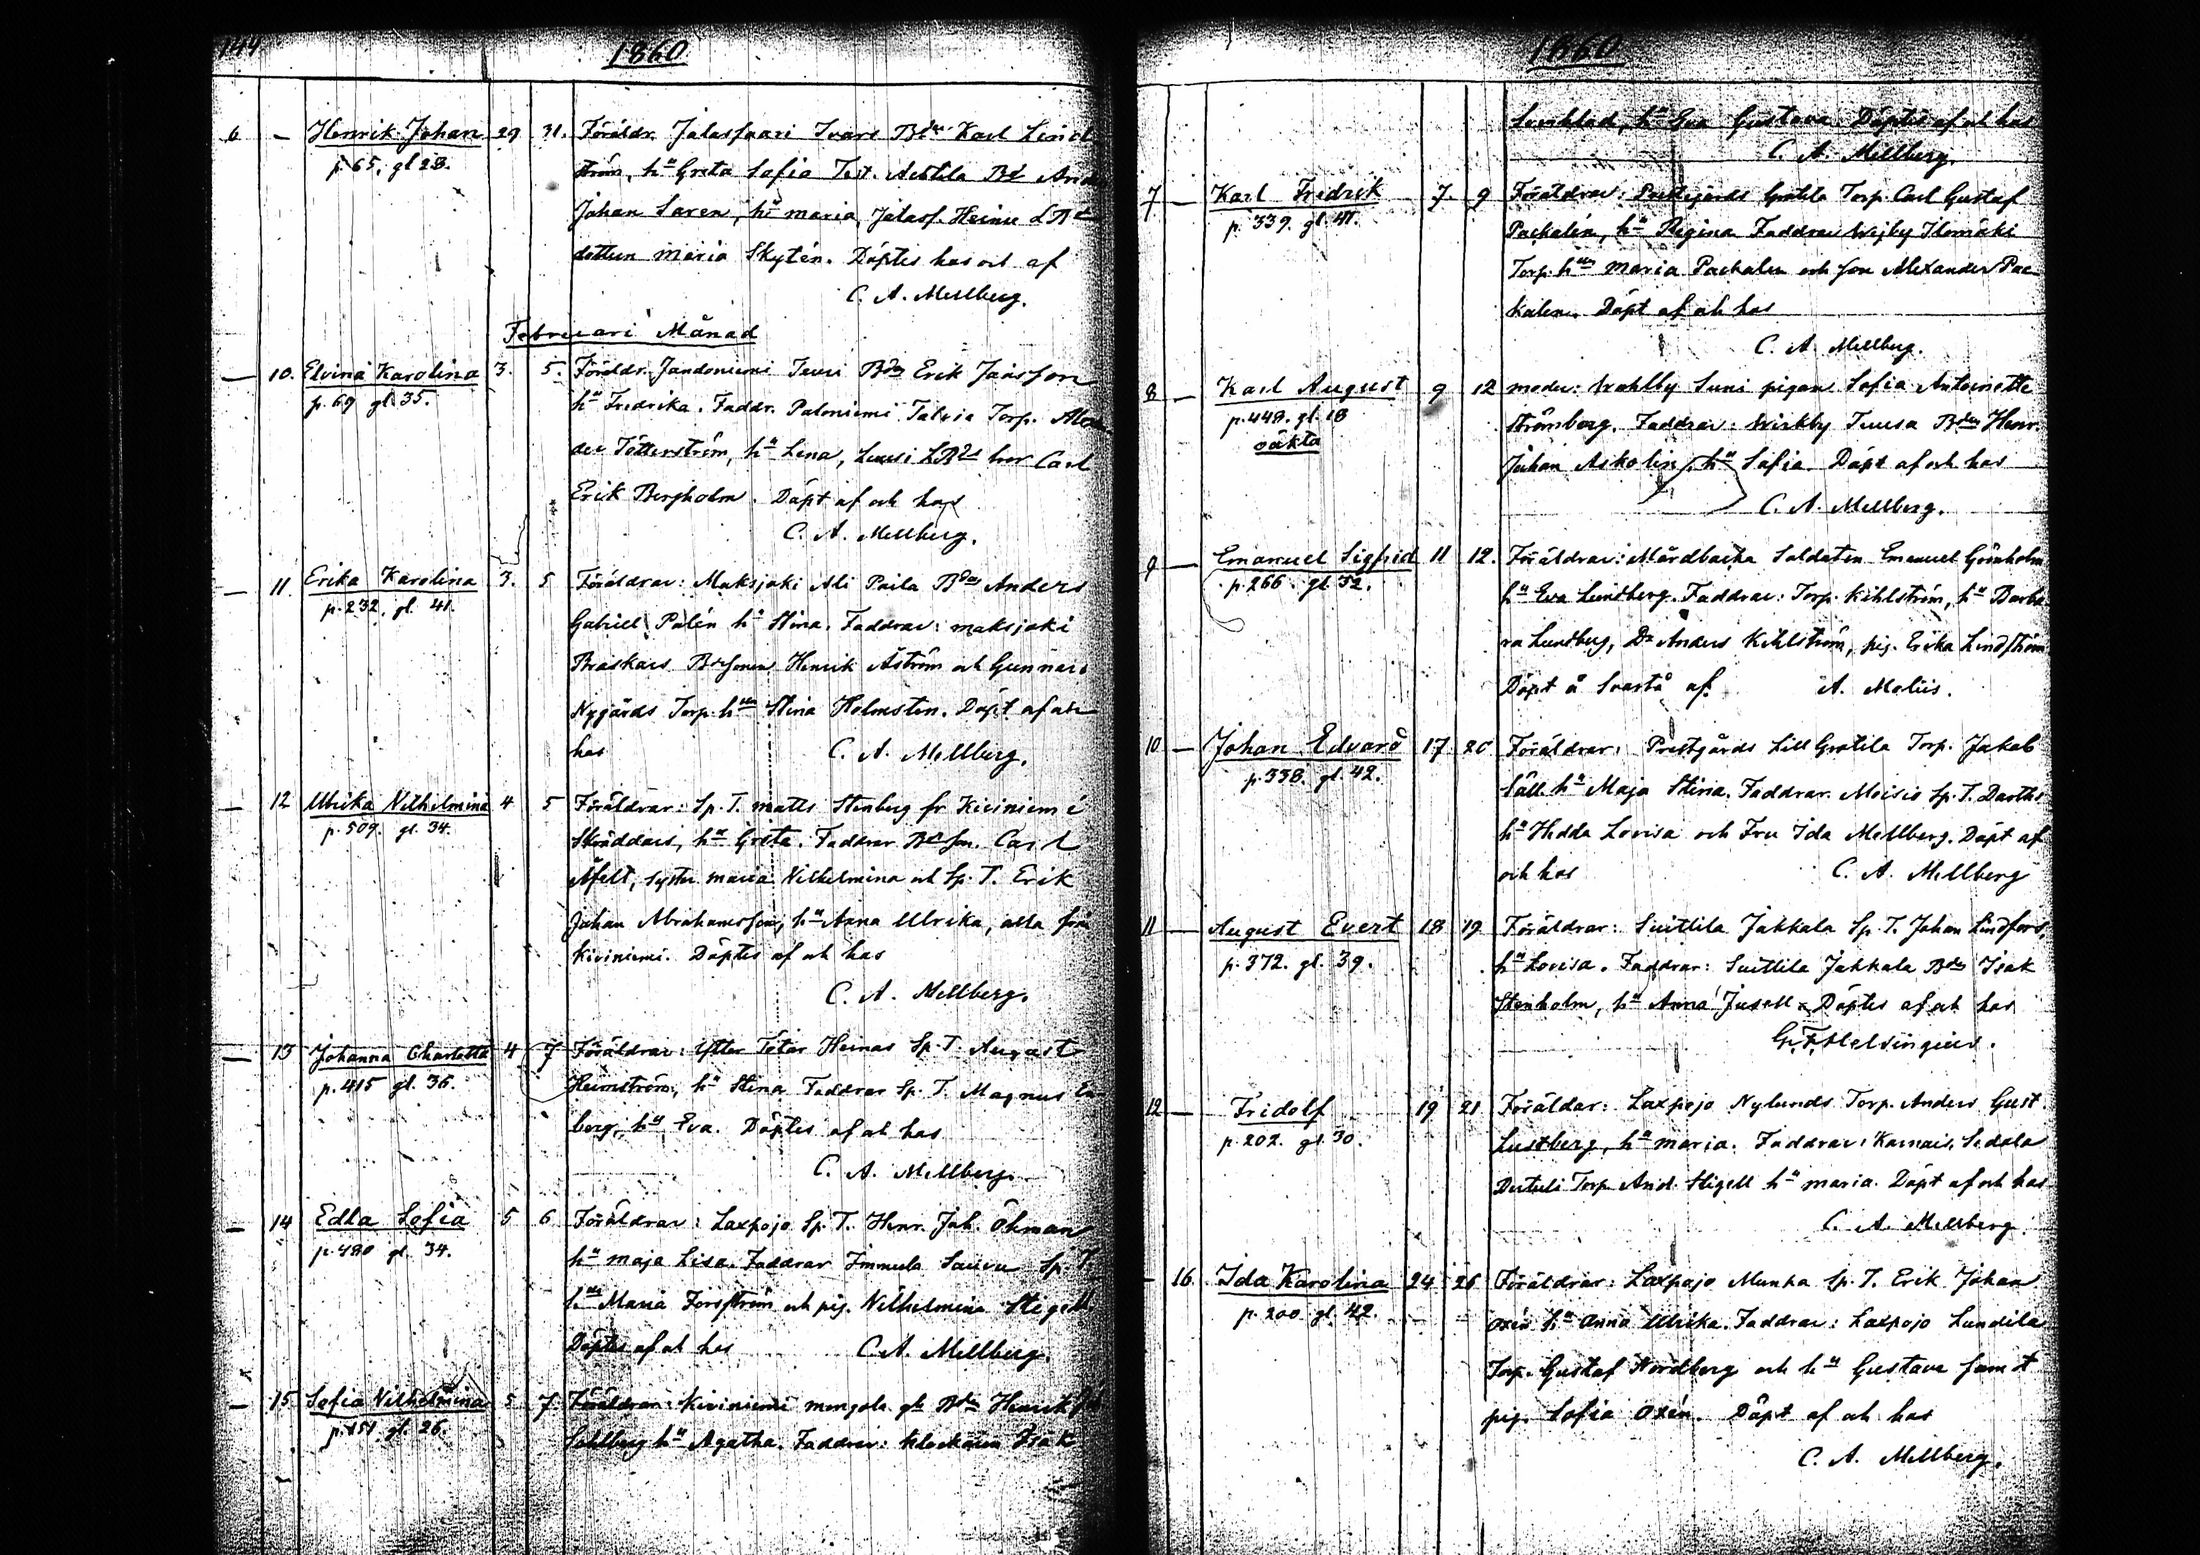 144
1860
6 — Henrik Johan 29 31. Föräldr. Jalassaari Ivars Bdn Karl Lind
p. 65. gl 28. ström, hu Greta Sofia Test. Bd And
Johan Saren, hu maria, Jalass. Heinu
dottern maria Skytén. Döptes hos och af
C. A. Mellberg.
Februari Månad
— 10. Elvina Karolina 3. 5. Föräldr. Jandoniemi Juusi Bdn Erik Jansson
p. 69 gl 35. hu Fredrika. Faddr. Paloniemi Talvia Torp. Alexan
der Tötterström, hu Lena, Carl
Erik Bergholm. Döpt af och hos
C. A. Mellberg.
— 11. Erika Karolina 3. 5 Föräldrar: Maksjoki Ali Paila Bdn Anders
p. 232. gl. 41. Gabriell Palén hu Stina. Faddrar: maksjoki
Braskars Bdsonen Henrik Åström och Gunnars
Nygårds Torp. hun Stina Holmsten. Döpt af och
hos C. A. Mellberg.
— 12 Ulrika Vilhelmina 4 5 Föräldrar: Sp. T. matts Stenberg fr Kiviniemi
p. 509. gl. 34. Skräddars, hu Greta. Faddrar Bdson. Carl
Åfelt, syster maria Vilhelmina och Sp. T. Erik
Johan Abrahamsson, hu Anna Ulrika, alla från
Kiviniemi. Döptes af och hos
C. A. Mellberg.
— 13 Johanna Charlotta 4 7 Föräldrar: Ytter Tötar Heinas Sp. T. August
p. 415 gl. 36. Heimström, hu Stina Faddrar Sp. T. Magnus En
berg, hu Eva. Döptes af och hos
C. A. Mellberg.
— 14 Edla Sofia 5 6. Föräldrar: Laxpojo Sp. T. Henr. Joh. Öhman
p. 480 gl. 34. hu maja Lisa. Faddrar Immula Sauru Sp. T.
hun Maria Forsström och pig. Vilhelmina Stegell.
Döptes af och hos C. A. Mellberg.
— 15 Sofia Vilhelmina 5 7. Föräldrar: Kiviniemi mongola Bdn Henrik
p. 151. gl. 26. Sahlberg hu Agatha. Faddrar: klockaren Isak
1860
Sundblad, hu Eva Gustava. Döptes af och hos
C. A. Mellberg.
7 — Karl Fredrik 7. 9 Föräldrar: Prestgårds Gratila Torp. Carl Gustaf
p. 339. gl. 41. Packalén, hu Regina Faddrar Wejby Ilomäki
Torp. hun maria Packalen och son Alexander Pac
kalen. Döpt af och hos
C. A. Mellberg.
8 — Karl August 9 12 moder: Wahlby Suni pigan Sofia Antoinette
p. 448. gl. 18 Strömberg. Faddrar: Wirkby Tuusa Bdn Henr.
oäkta Johan Askolin, hu Sofia. Döpt af och hos
C. A. Mellberg.
9 — Emanuel Sigfrid 11 12. Föräldrar: Mårdbacka Soldaten Emanuel Grönholm
p. 266. gl. 32. hu Eva Lundberg. Faddrar: Torp. Kihlström, hu Barba
ra Lundberg, Dr Anders Kihlström, pig. Erika Lindström
Döpt å Svartå af A. Molüs.
10 — Johan Edvard 17 20 Föräldrar: Prestgårds Lill Gratila Torp. Jakob
p. 338. gl. 42. Säll hu Maja Stina. Faddrar. Moisio Sp. T. Barths
hu Hedda Lovisa och Fru Ida Mellberg. Döpt af
och hos C. A. Mellberg
11 — August Evert 18 19 Föräldrar: Suittila Jakkala Sp. T. Johan Lindfors,
p. 372. gl. 39. hu Lovisa. Faddrar: Suittila Jakkala Bdn Isak
Stenholm, hu Anna Jusell. Döptes af och hos
G. F. Helsingius.
12 — Fridolf 19 21 Föräldar: Laxpojo Nylunds Torp. Anders Gust.
p. 202. gl. 30. Lustberg, hu maria. Faddrar: Karnais, Sedola
Torp. And. Stigell hu maria. Döpt af och hos
C. A. Mellberg
— 16. Ida Karolina 24 26 Föräldrar: Laxpojo Munka Sp. T. Erik Johan
p. 200 gl. 42. Oxén hu Anna Ulrika. Faddrar: Laxpojo Lundila
Torp. Gustaf Nordberg och hu Gustava samt
pig. Sofia Oxén. Döpt af och hos
C. A. Mellberg.